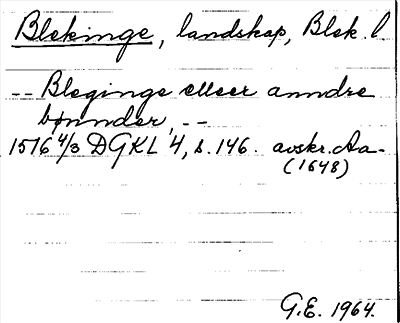 Blekinge, landskap, Blek. l
-- Bleginge elleer anndre
bønnder, --
1516 4/3 DGKL 4, s. 146. avskr. Aa-
(1648)
G.E. 1964.